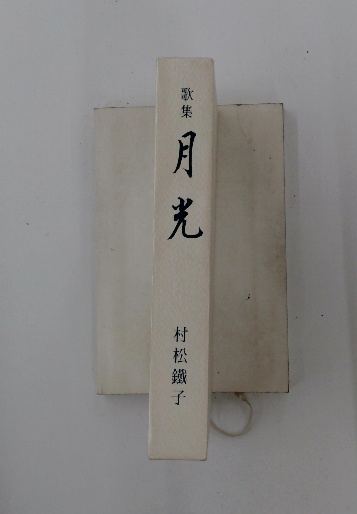 歌集
月光
村松鐵子